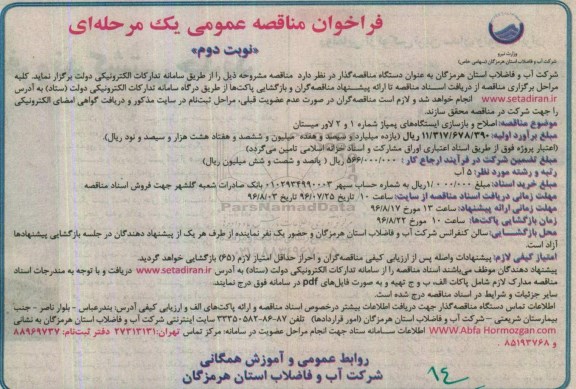 فراخوان مناقصه عمومی یک مرحله‌ای
«نوبت دوم»
وزارت نیرو
شرکت آب و فاضلاب استان هرمزگان (سهامی خاص)
شرکت آب و فاضلاب استان هرمزگان به عنوان دستگاه مناقصه‌گذار در نظر دارد مناقصه مشروحه ذیل را از طریق سامانه تدارکات الکترونیکی دولت برگزار نماید. کلیه
مراحل برگزاری مناقصه از دریافت اسناد مناقصه تا ارائه پیشنهاد مناقصه‌گران و بازگشایی پاکت‌ها از طریق درگاه سامانه تدارکات الکترونیکی دولت (ستاد) به آدرس
www.setadiran.ir انجام خواهد شد و لازم است مناقصه‌گران در صورت عدم عضویت قبلی، مراحل ثبت‌نام در سایت مذکور و دریافت گواهی امضای الکترونیکی
را جهت شرکت در مناقصه محقق سازند.
موضوع مناقصه: اصلاح و بازسازی ایستگاه‌های پمپاژ شماره ۱ و ۲ لاور میستان
مبلغ برآورد اولیه: ۱۱/۳۱۷/۶۷۸/۳۹۰ ریال (یازده میلیارد و سیصد و هفده میلیون و ششصد و هفتاد هشت هزار و سیصد و نود ریال).
(اعتبار پروژه فوق از طریق اسناد اعتباری اوراق مشارکت و اسناد خزانه اسلامی تامین می‌گردد)
مبلغ تضمین شرکت در فرآیند ارجاع کار : ۵۶۶/۰۰۰/۰۰۰ ریال ( پانصد و شصت و شش میلیون ریال).
رتبه و رشته مورد نظر: ۵ آب
مبلغ خرید اسناد: مبلغ ۱/۰۰۰/۰۰۰ ریال به شماره حساب سپهر ۰۱۰۲۹۳۴۹۹۰۰۰۳ بانک صادرات شعبه گلشهر جهت فروش اسناد مناقصه
مهلت زمانی دریافت اسناد مناقصه از سایت: ساعت ۱۰ تاریخ ۹۶/۰۷/۲۵ تاریخ ۹۶/۸/۰۳
مهلت زمانی ارائه پیشنهاد: ساعت ۱۳ مورخ ۹۶/۸/۱۷
زمان بازگشایی پاکت‌ها: ساعت ۱۰ مورخ ۹۶/۸/۲۲
محل بازگشایی: سالن کنفرانس شرکت آب و فاضلاب استان هرمزگان و حضور یک نفر نماینده از طرف هر یک از پیشنهاد دهندگان در جلسه بازگشایی پیشنهادها
آزاد است.
امتیاز کیفی لازم: پیشنهادات واصله پس از ارزیابی کیفی مناقصه‌گران و احراز حداقل امتیاز لازم (۶۵) بازگشایی خواهد گردید.
پیشنهاد دهندگان موظف می‌باشند اسناد مناقصه را از سامانه تدارکات الکترونیکی دولت (ستاد) به آدرس www.setadiran.ir دریافت و با توجه به مندرجات اسناد
مناقصه مدارک لازم شامل پاکات الف، ب و ج تهیه و به صورت فایل‌های pdf در سامانه فوق درج نمایند.
سایر جزئیات و شرایط در اسناد مناقصه درج شده است.
اطلاعات تماس دستگاه مناقصه‌گذار جهت دریافت اطلاعات بیشتر درخصوص اسناد مناقصه و ارائه پاکت‌های الف و ارزیابی کیفی آدرس: بندرعباس - بلوار ناصر - جنب
بیمارستان شریعتی – شرکت آب و فاضلاب استان هرمزگان (امور قراردادها) تلفن ۸۷-۸۶-۳۳۳۵۰۵۸۲ سایت اینترنتی شرکت آب و فاضلاب استان هرمزگان به نشانی
WWW.Abfa Hormozgan.com اطلاعات سامانه ستاد جهت انجام مراحل عضویت در سامانه: مرکز تماس تهران: ۲۷۳۱۳۱۳۱ دفتر ثبت‌نام: ۸۸۹۶۹۷۳۷
و ۸۵۱۹۳۷۶۸
روابط عمومی و آموزش همگانی
شرکت آب و فاضلاب استان هرمزگان
۱۴
ParsNamadData